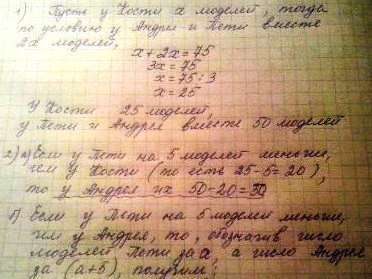 1) Пусть у Кости x моделей, тогда
по условию у Андрея и Пети вместе
2x моделей,
x + 2x = 75
3x = 75
x = 75 : 3
x = 25
У Кости 25 моделей,
у Пети и Андрея вместе 50 моделей
2) а) Если у Пети на 5 моделей меньше,
чем у Кости (то есть 25 - 5 = 20),
то у Андрея их 50 - 20 = 30
б) Если у Пети на 5 моделей меньше,
чем у Андрея, то, обозначив число
моделей Пети за a, а число Андрея
за (a+5), получим: